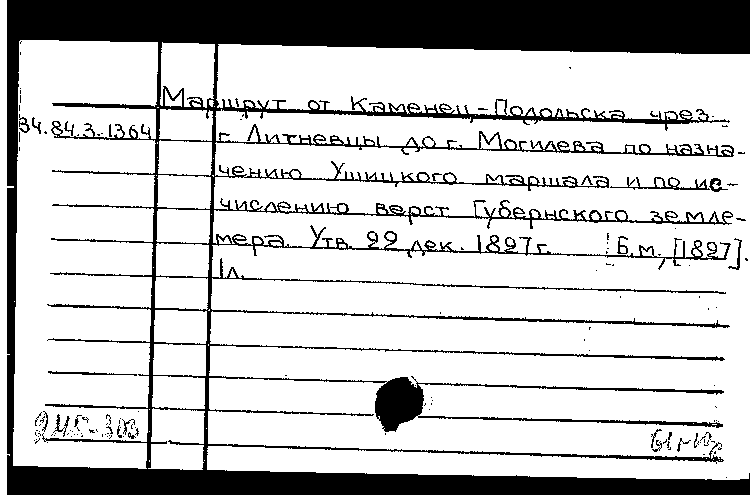 Маршрут от Каменец-Подольска чрез
34.84.3.1364
г. Литневцы до г. Могилева по назна-
чению Ушицкого маршала и по ис-
числению верст Губернского земле-
мера. Утв. 22 дек. 1827 г. [Б.м., [1827].
1л.
245-303